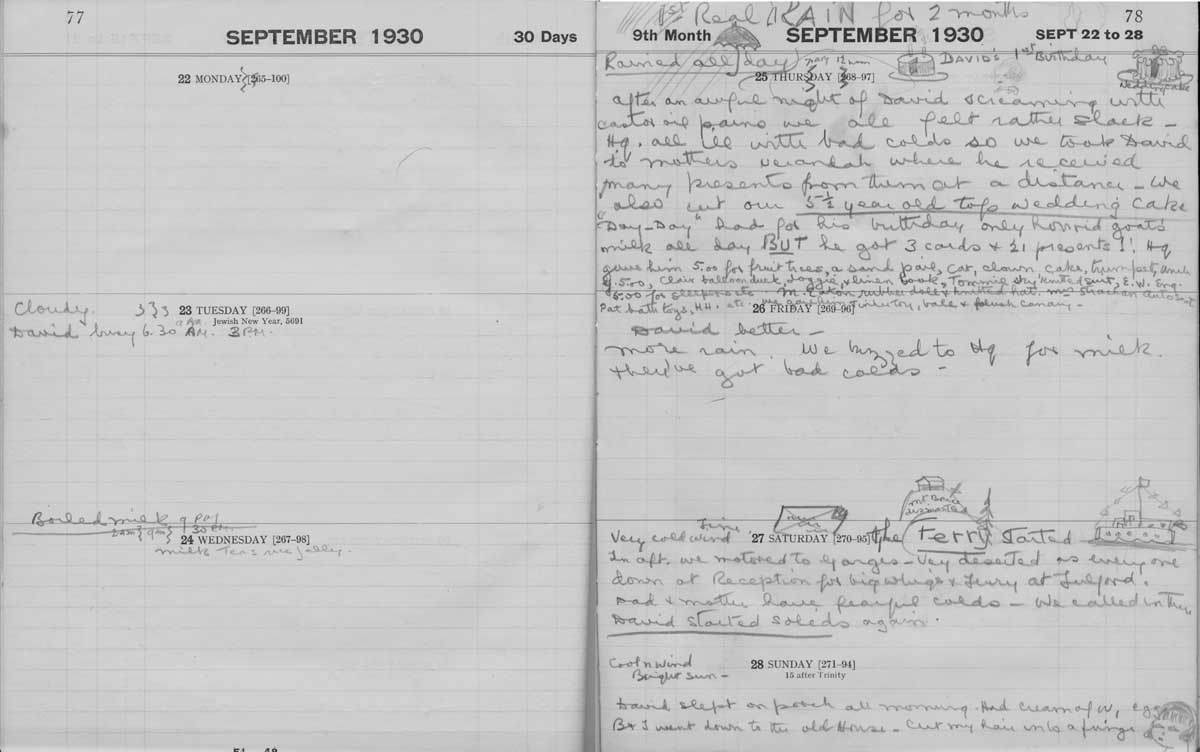 77
SEPTEMBER 1930 30 Days
22 MONDAY [265–100]
Cloudy 23 TUESDAY [266–99]
Jewish New Year, 5691
David busy 6.30 AM. 3 PM.
Boiled milk 9 PM
24 WEDNESDAY [267–98]
milk
1st Real RAIN for 2 months
78
9th Month SEPTEMBER 1930 SEPT 22 to 28
Rained all day DAVID'S 1st Birthday
25 THURSDAY [268–97] Wedding cake
After an awful night of David screaming with
castor oil pains we all felt rather slack –
Hq. all ill with bad colds so we took David
to mothers verandah where he received
many presents from them at a distance – We
also cut our 5½ year old top wedding cake
"Day–Day" had for his birthday only horrid goats
milk all day BUT he got 3 cards & 21 presents!! Hq
gave him 5.00 for fruit trees, a sand pail, car, clown, cake, trumpet,
5.00, balloon duck, doggie & linen book, knitted suit, E.W. Eng.
5.00 for M. Eaton rubber doll & knitted hat
Pat bath toys, H.H. etc. ball & plush canary –
26 FRIDAY [269–96]
David better –
more rain. We buzzed to Hq for milk.
they've got bad colds –
Mt Bruce
Fine
Very cold wind 27 SATURDAY [270–95] The Ferry Started
In aft. we motored to Ganges – Very deserted as every one
down at Reception for big whigs & Ferry at Fulford.
Dad & mother have fearful colds – We called in there
David started solids again.
Cool n wind 28 SUNDAY [271–94]
Bright sun – 15 after Trinity
David slept on porch all morning. Had cream of W, egg
B & I went down to the old House – Cut my hair into a fringe